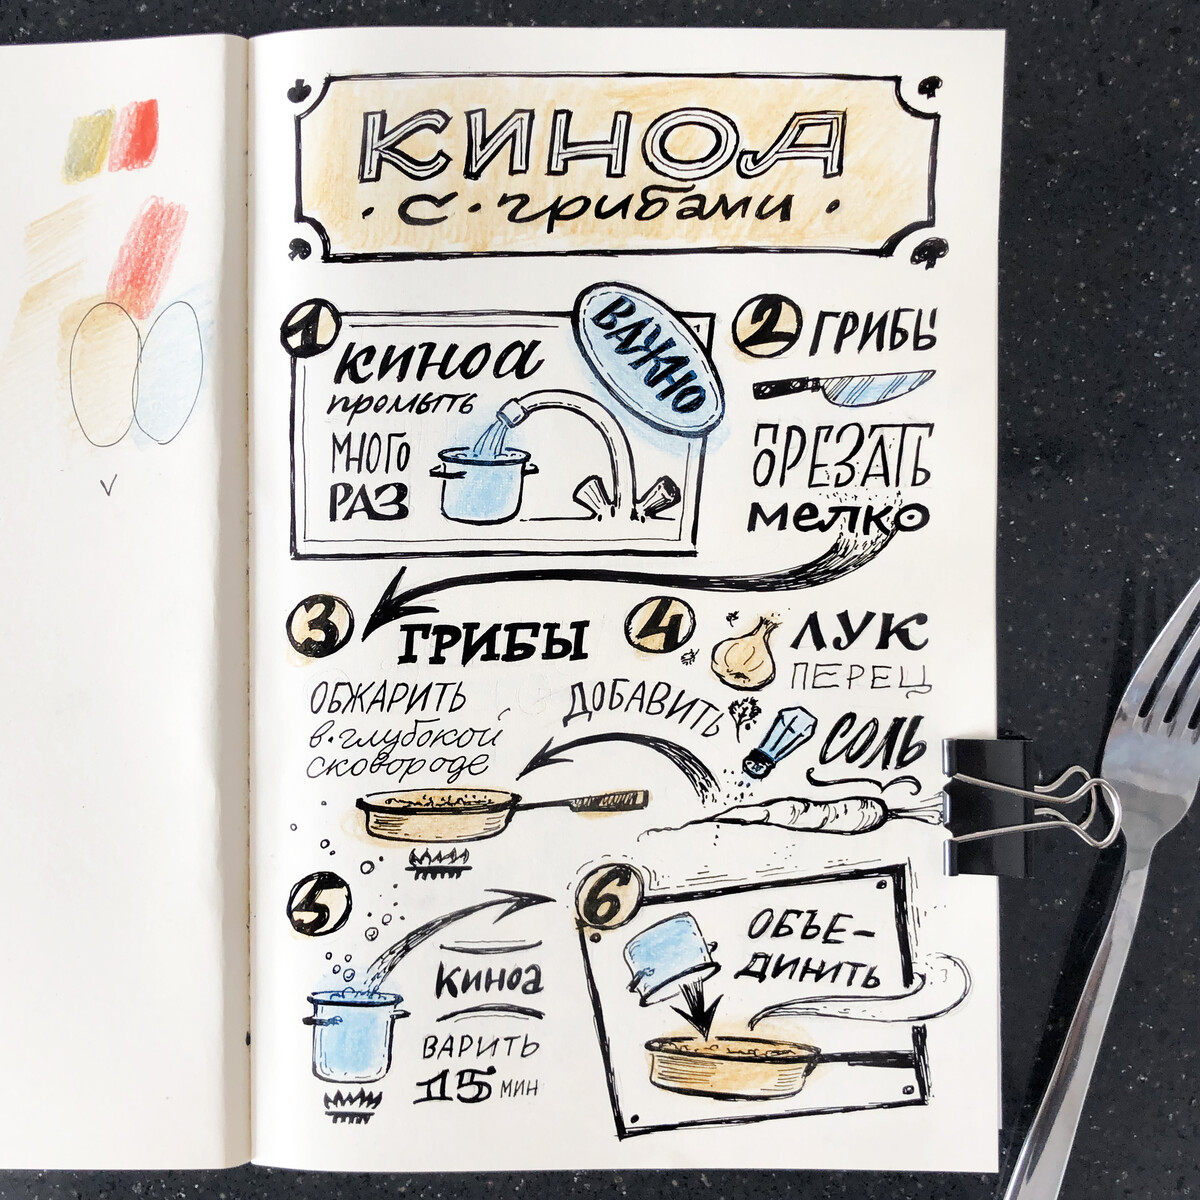 КИНОА
· с · грибами ·
1
ВАЖНО
киноа
промыть
МНОГО
РАЗ
2
ГРИБЫ
ПОРЕЗАТЬ
мелко
3
ГРИБЫ
ОБЖАРИТЬ
в · глубокой
сковороде
4
ЛУК
ПЕРЕЦ
ДОБАВИТЬ
СОЛЬ
5
Киноа
ВАРИТЬ
15 МИН
6
ОБЪЕ-
ДИНИТЬ